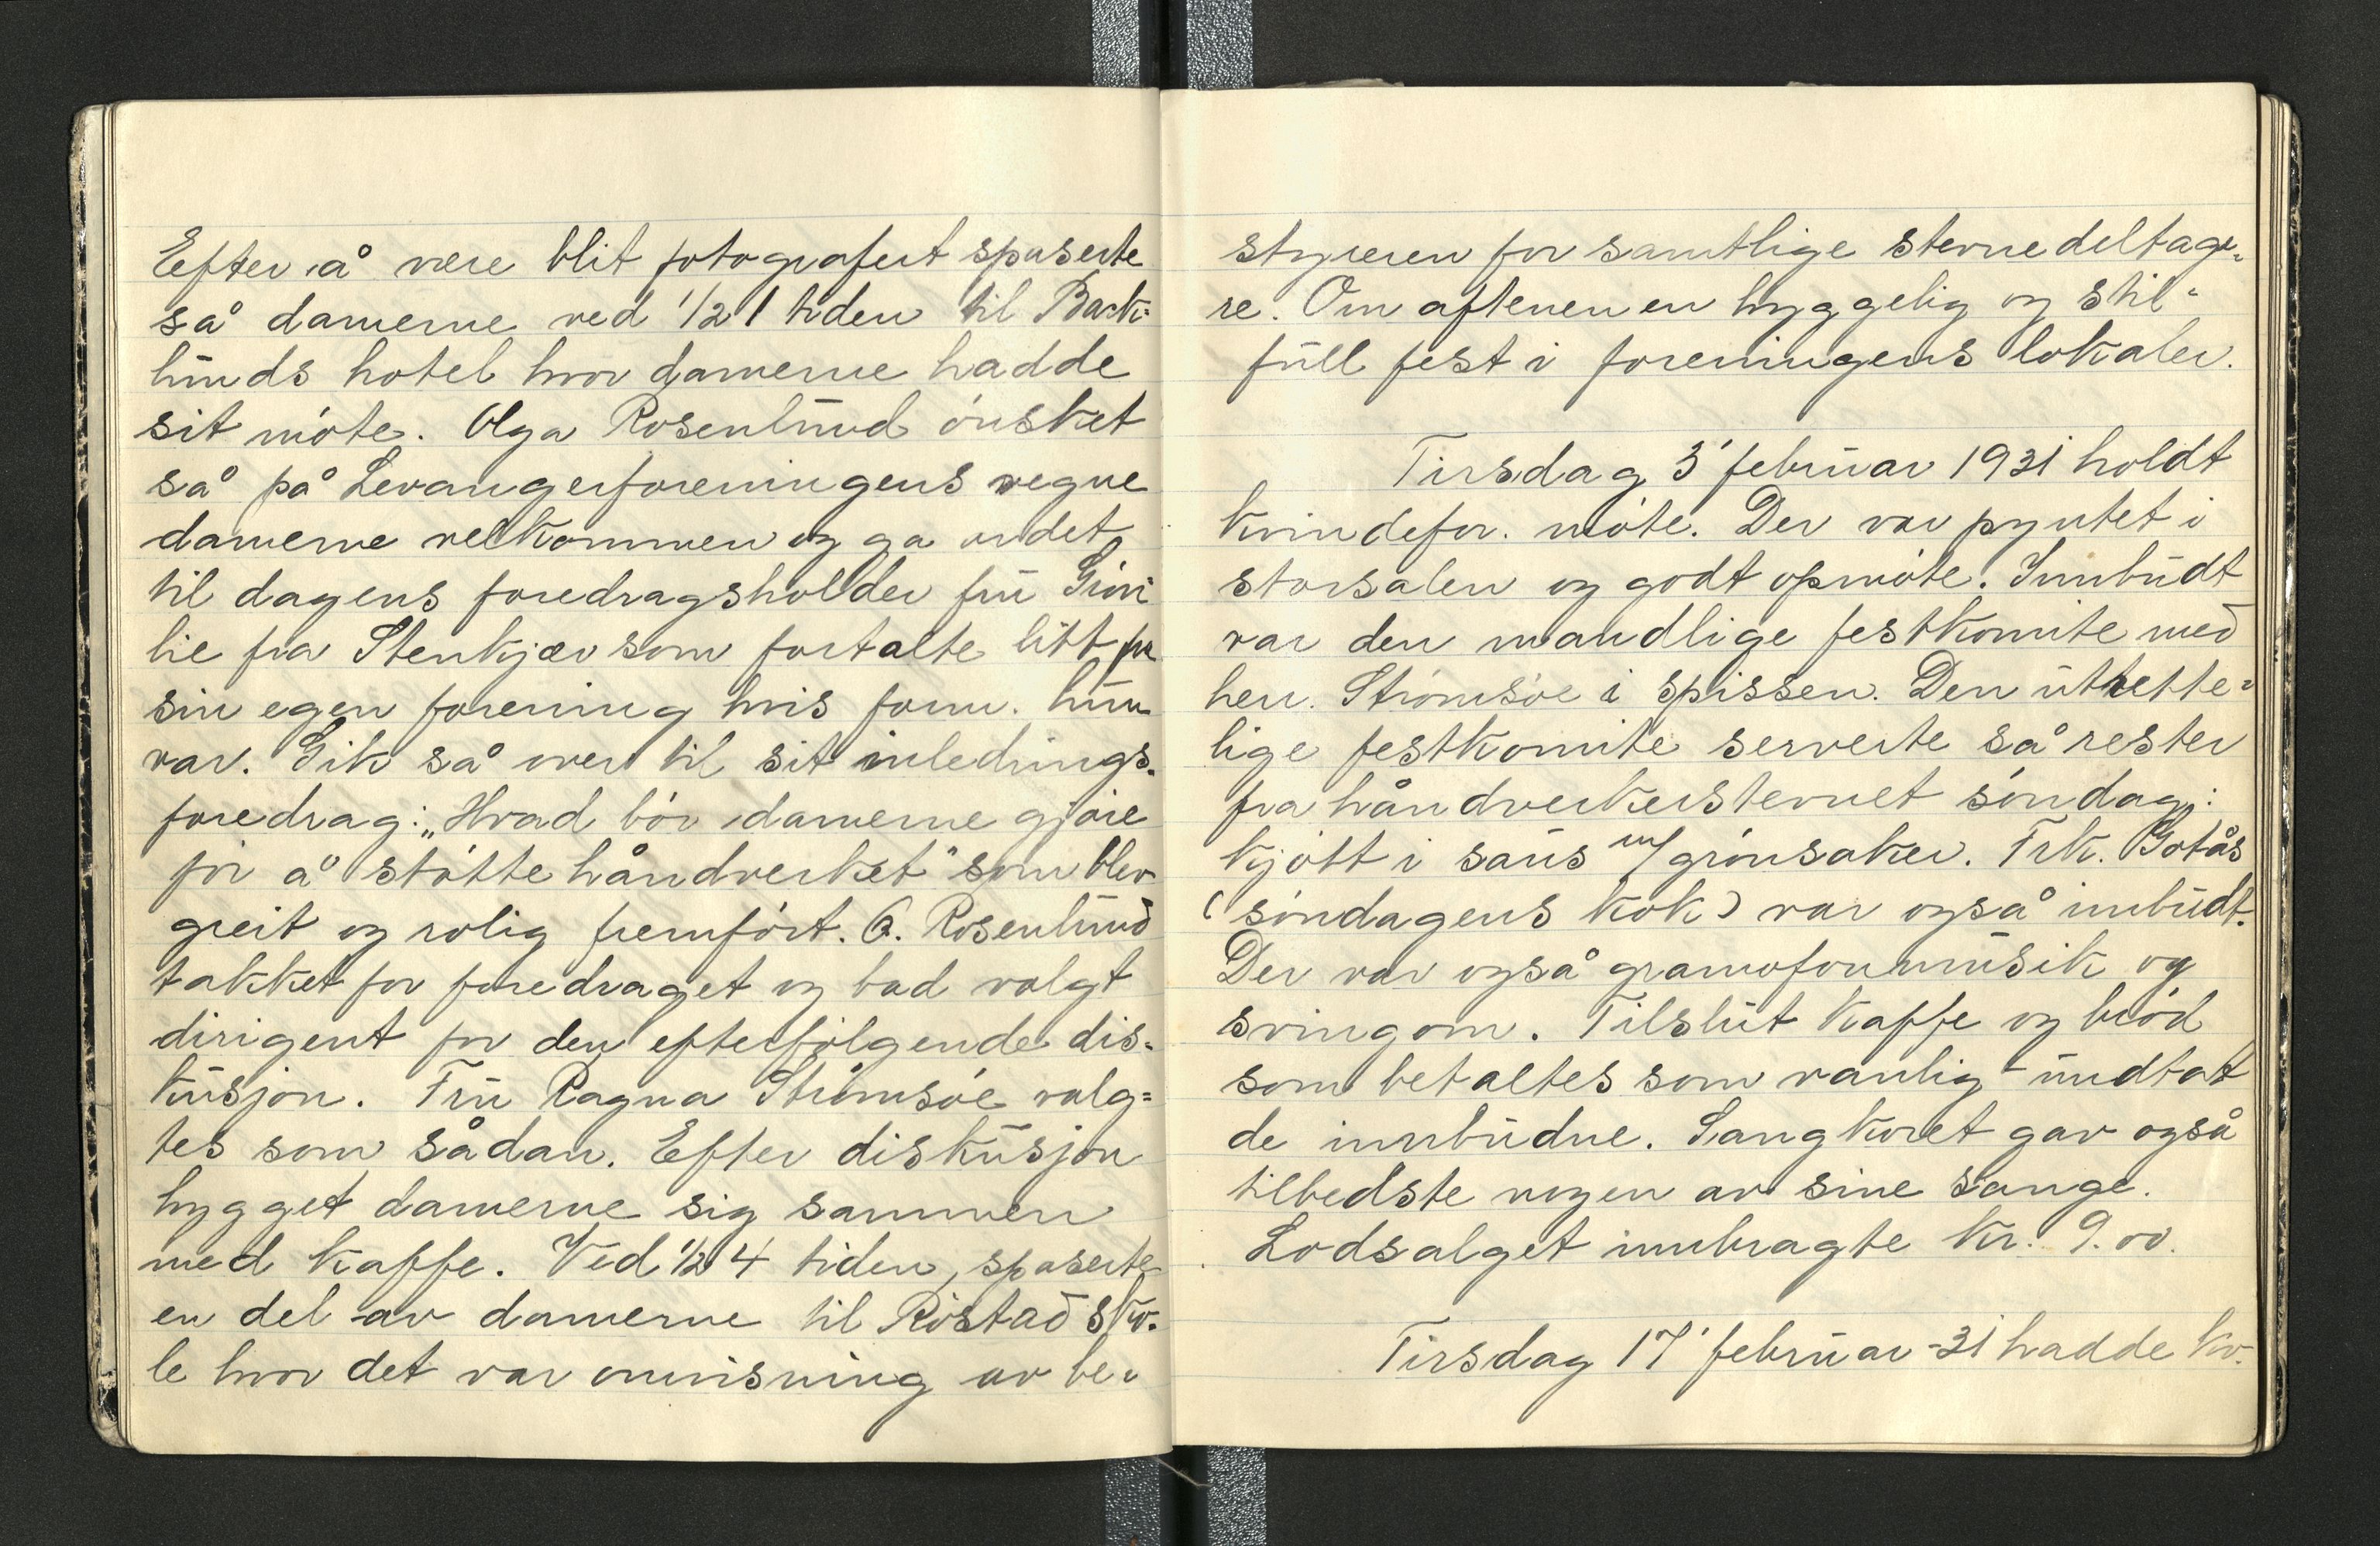 Efter å være blit fotografert spaserte
så damerne ved 1/2 1 tiden til Back-
lunds hotel hvor damerne hadde
sit møte. Olga Rosenlund ønsket
så på Levangerforeningens vegne
damerne velkommen og ga ordet
til dagens foredragsholder fru Grøn-
lie fra Stenkjær som fortalte litt fra
sin egen forening hvis form. hun
var. Gik så over til sit inlednings-
foredrag: „Hvad bør damerne gjøre
for å støtte håndverket" som blev
greit og rolig fremført. O. Rosenlund
takket for foredraget og bad valgt
dirigent for den efterfølgende dis-
kusjon. Fru Ragna Strømsøe valg=
tes som sådan. Efter diskusjon
hygget damerne sig sammen
med kaffe. Ved 1/2 4 tiden, spaserte
en del av damerne til Røstad sko-
le hvor det var omvisning av be-
styreren for samtlige stevnedeltage-
re. Om aftenen en hyggelig og stil-
full fest i foreningens lokaler.
Tirsdag 3' februar 1931 holdt
kvindefor. møte. Der var pyntet i
storsalen og godt opmøte. Innbudt
var den mandlige festkomite med
herr. Strømsøe i spissen. Den utrette=
lige festkomite serverte så rester
fra håndverkerstevnet søndag:
kjøtt i saus m/ grønsaker. Frk. Gotås
(søndagens kok) var også innbudt.
Der var også gramofonmusik og
svingom. Tilslut kaffe og brød
som betaltes som vanlig - undtat
de innbudne. Sangkoret gav også
tilbedste nogen av sine sange.
Lodsalget innbragte kr. 9.00.
Tirsdag 17' februar -31 hadde kv.